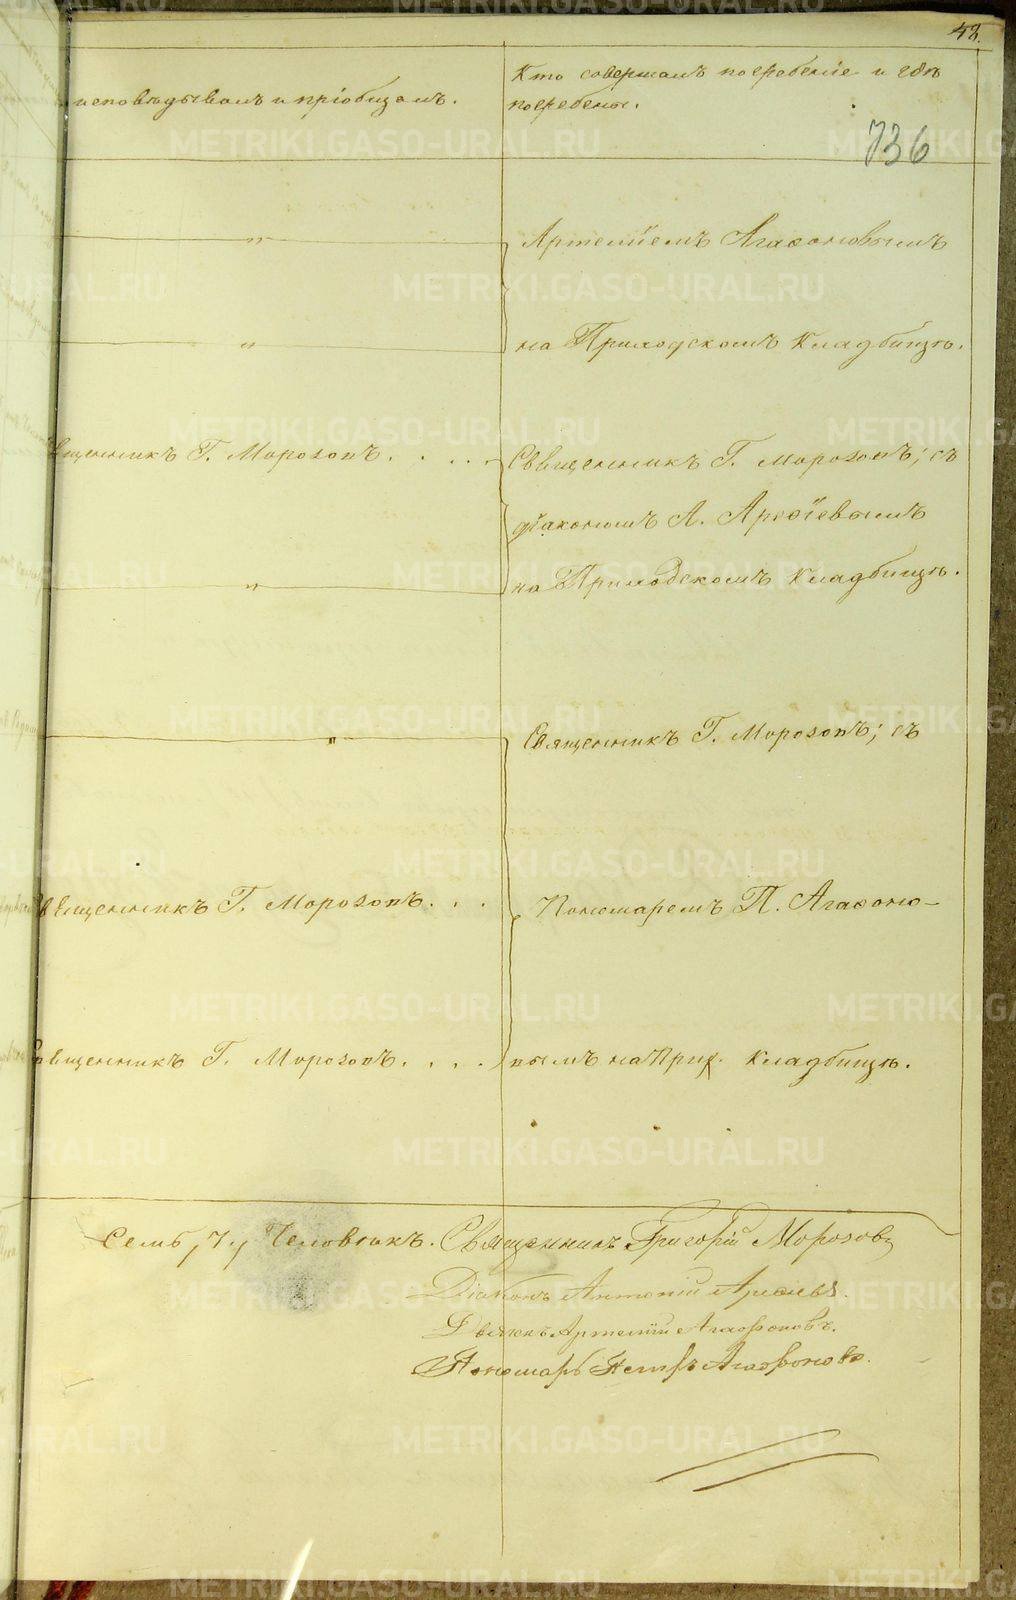 42.
исповѣдывалъ и пріобщалъ.
Кто совершалъ погребеніе и гдѣ
погребены.
736
"
Артеміемъ Агафоновымъ
"
на Приходскомъ Кладбищѣ.
Священникъ Г. Морозовъ. . . . .
Священникъ Г. Морозовъ; съ
діакономъ А. Арефіевымъ
"
на Приходскомъ Кладбищѣ.
"
Священникъ Г. Морозовъ; съ
Священникъ Г. Морозовъ. . .
Пономаремъ П. Агафоно-
Священникъ Г. Морозовъ. . . .
вымъ на Прих. Кладбищѣ.
Семь, 7, Человѣкъ. Священникъ Григорій Морозовъ
Діаконъ Антоній Арефіевъ.
Дьячекъ Артемій Агафоновъ.
Пономарь Петръ Агафоновъ.
METRIKI.GASO-URAL.RU